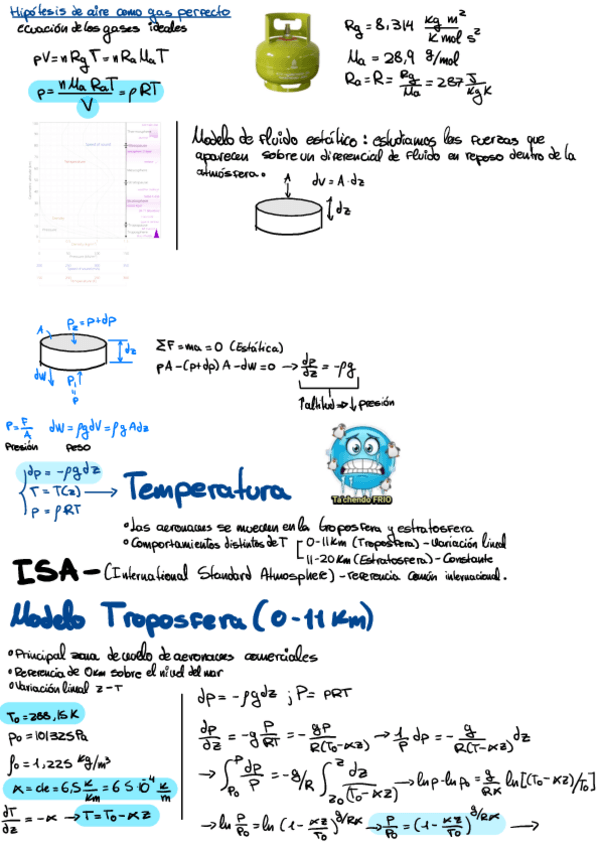 Hipótesis de aire como gas perfecto
ecuación de los gases ideales
pV = nRgT = nRaMaT
p = nMaRaT/V = ρRT
Rg = 8,314 kg m²/K mol s²
Ma = 28,9 g/mol
Ra = R = Rg/Ma = 287 J/kgK
Modelo de Fluido estático: estudiamos las fuerzas que
aparecen sobre un diferencial de fluido en reposo dentro de la
atmósfera.
A
dV = A·dz
dz
P₂ = p+dp
A
dz
dW
P₁
"
P
ΣF = ma = 0 (Estática)
pA-(p+dp)A-dW=0 → dp/dz = -ρg
↑altitud → ↓presión
P = F/A
dW = ρgdV = ρgAdz
Presión
Peso
dp = -ρgdz
T = T(z) →
p = ρRT
Temperatura
Ta'chendo FRIO
• Las aeronaves se mueven en la troposfera y estratosfera
• Comportamientos distintos de T
0-11Km (Troposfera) - Variación lineal
11-20Km (Estratosfera) - Constante
ISA - (International Standard Atmosphere) - referencia común internacional.
Modelo Troposfera (0-11 Km)
• Principal zona de vuelo de aeronaves comerciales
• Referencia de 0km sobre el nivel del mar
• Variación lineal z-T
T₀ = 288,15 K
p₀ = 101325 Pa
ρ₀ = 1,225 kg/m³
α = cte = 6,5 K/Km = 6 5·10⁻⁴ K/m
dT/dz = -α → T = T₀-αz
dp = -ρgdz ; P = ρRT
dp/dz = -g P/RT = - gP/R(T₀-αz) → 1/P dp = - g/R(T-αz) dz
→ ∫p₀^P dp/P = -g/R ∫z₀^z dz/(T₀-αz) → lnp-lnp₀ = g/Rα ln[(T₀-αz)/T₀]
→ ln P/P₀ = ln (1 - αz/T₀)^g/Rα → P/P₀ = (1 - αz/T₀)^g/Rα →